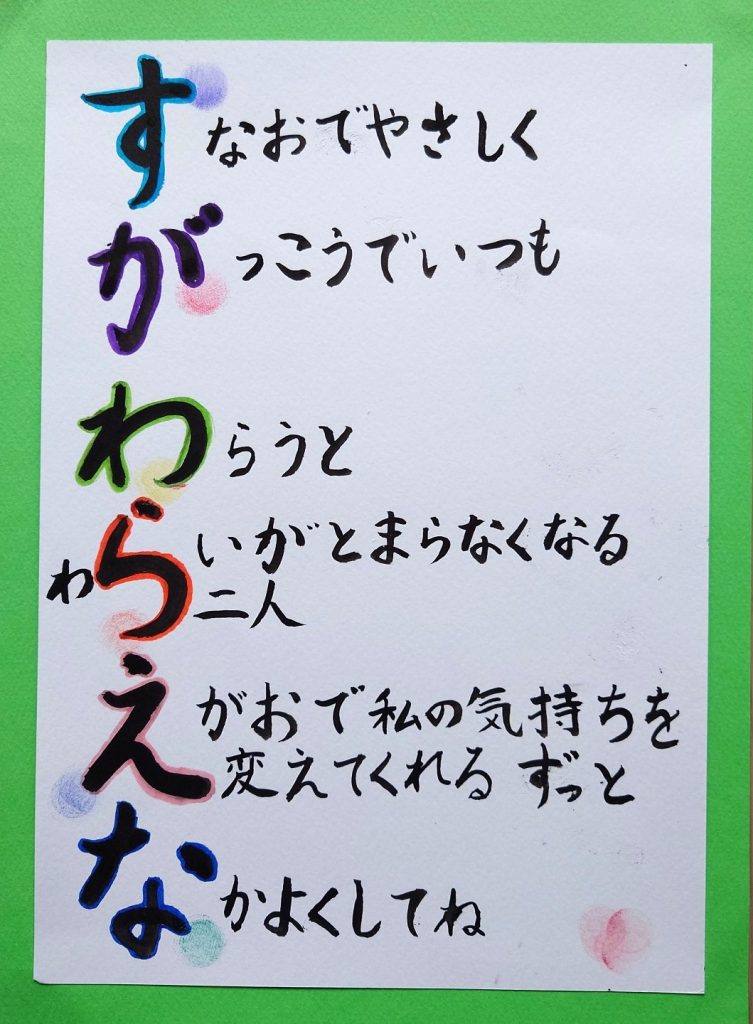 すなおでやさしく
がっこうでいつも
わらうと
わらいがとまらなくなる
二人
えがおで私の気持ちを
変えてくれる ずっと
なかよくしてね